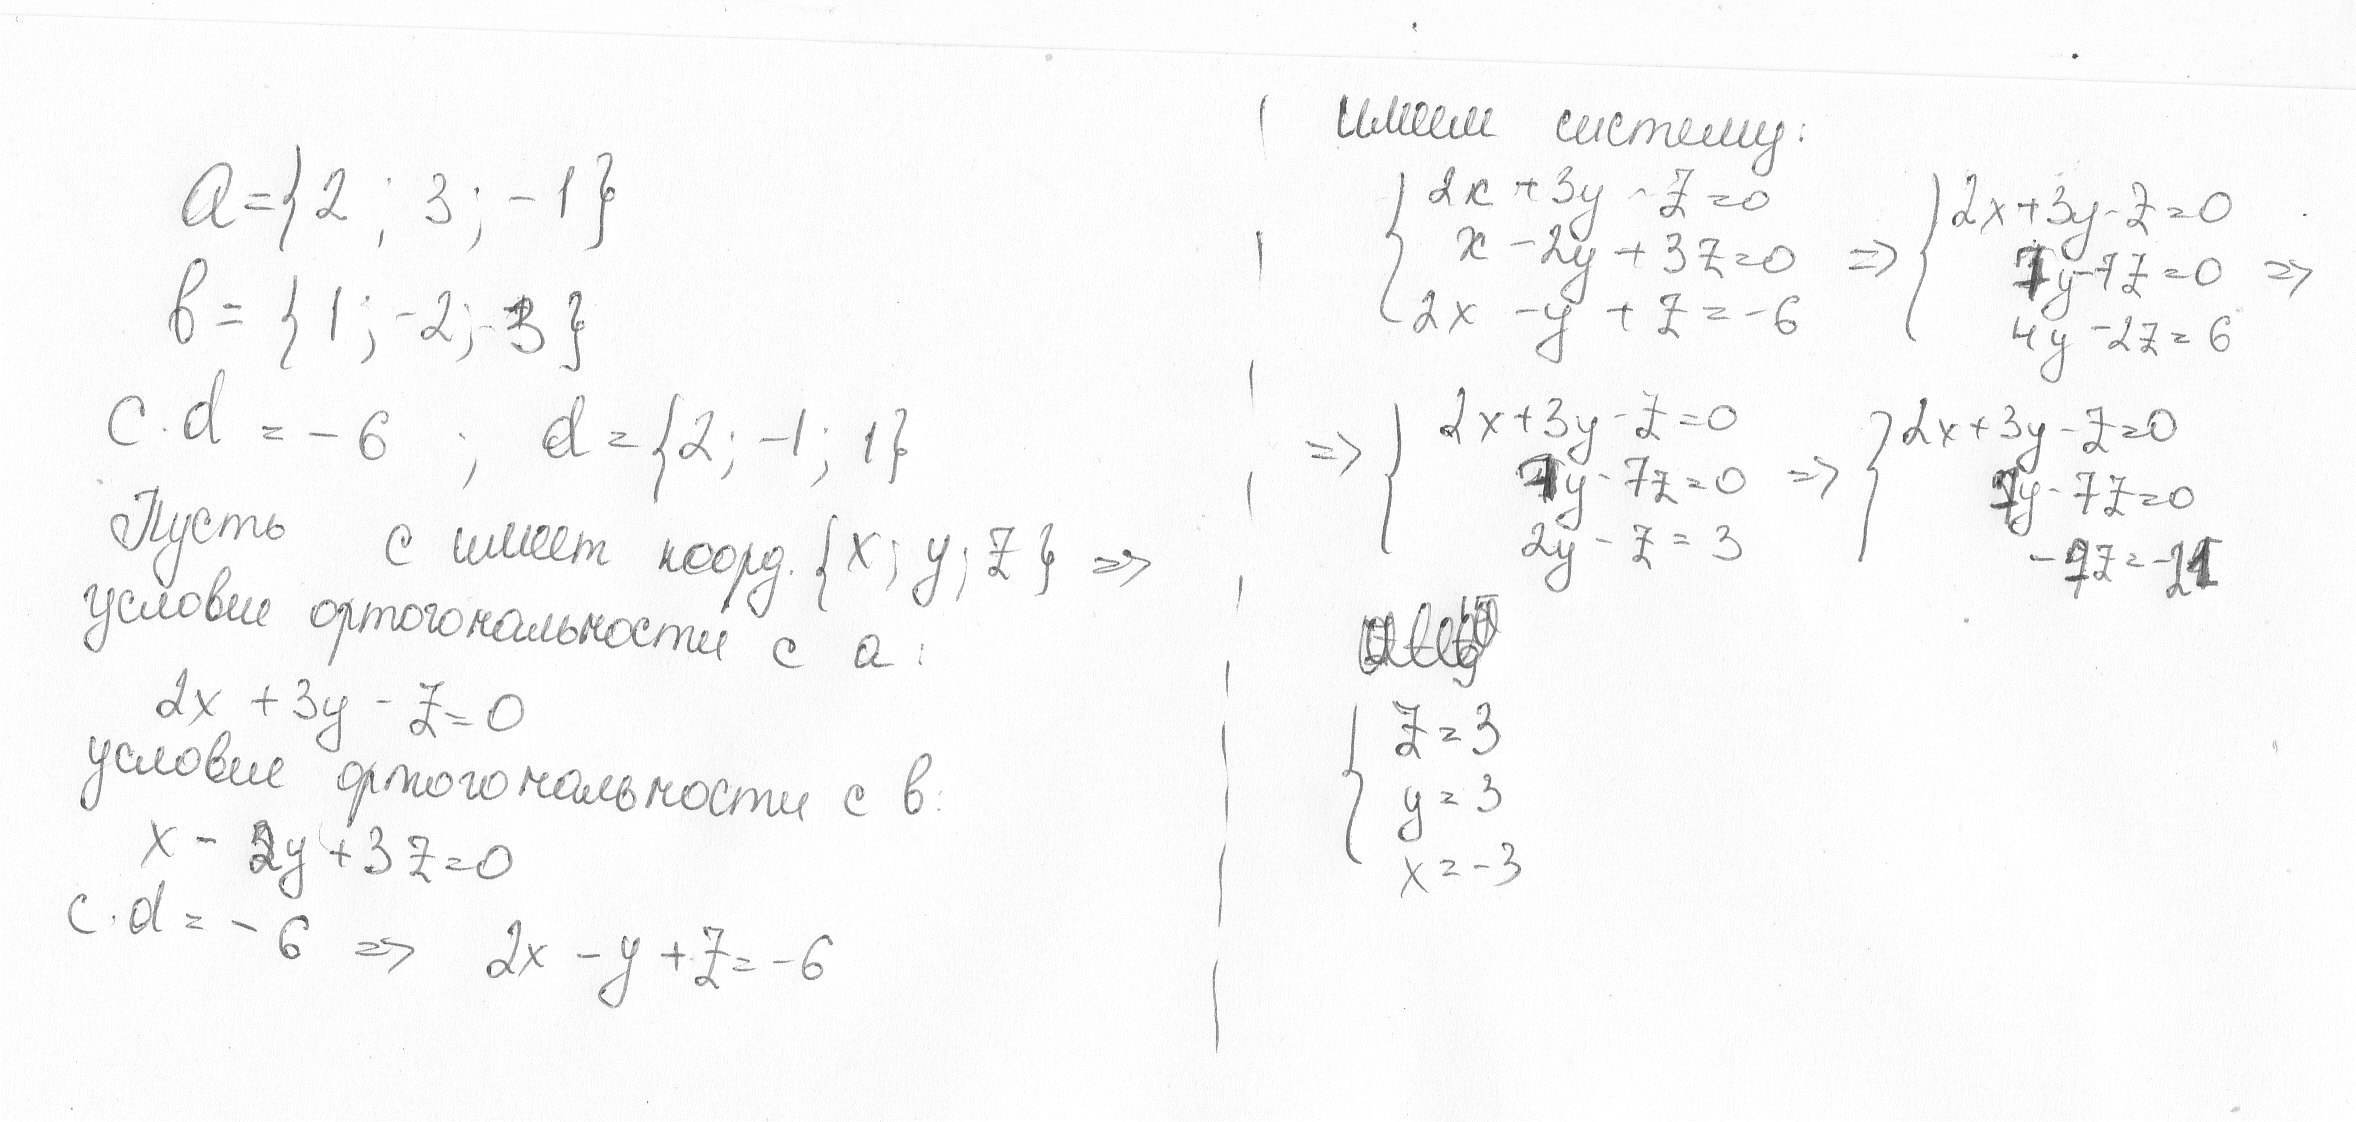 a={2; 3; -1}
b={1; -2; -3}
c·d = -6 ; d={2; -1; 1}
Пусть с имеет коорд. {x; y; z} =>
условие ортогональности с a:
2x + 3y - z = 0
условие ортогональности с b:
x - 2y + 3z = 0
c·d = -6 => 2x - y + z = -6
имеем систему:
{ 2x + 3y - z = 0 { 2x + 3y - z = 0
x - 2y + 3z = 0 => 7y - 7z = 0 =>
2x - y + z = -6 4y - 2z = 6
{ 2x + 3y - z = 0 { 2x + 3y - z = 0
=> 7y - 7z = 0 => 7y - 7z = 0
2y - z = 3 -7z = -21
{ z = 3
y = 3
x = -3